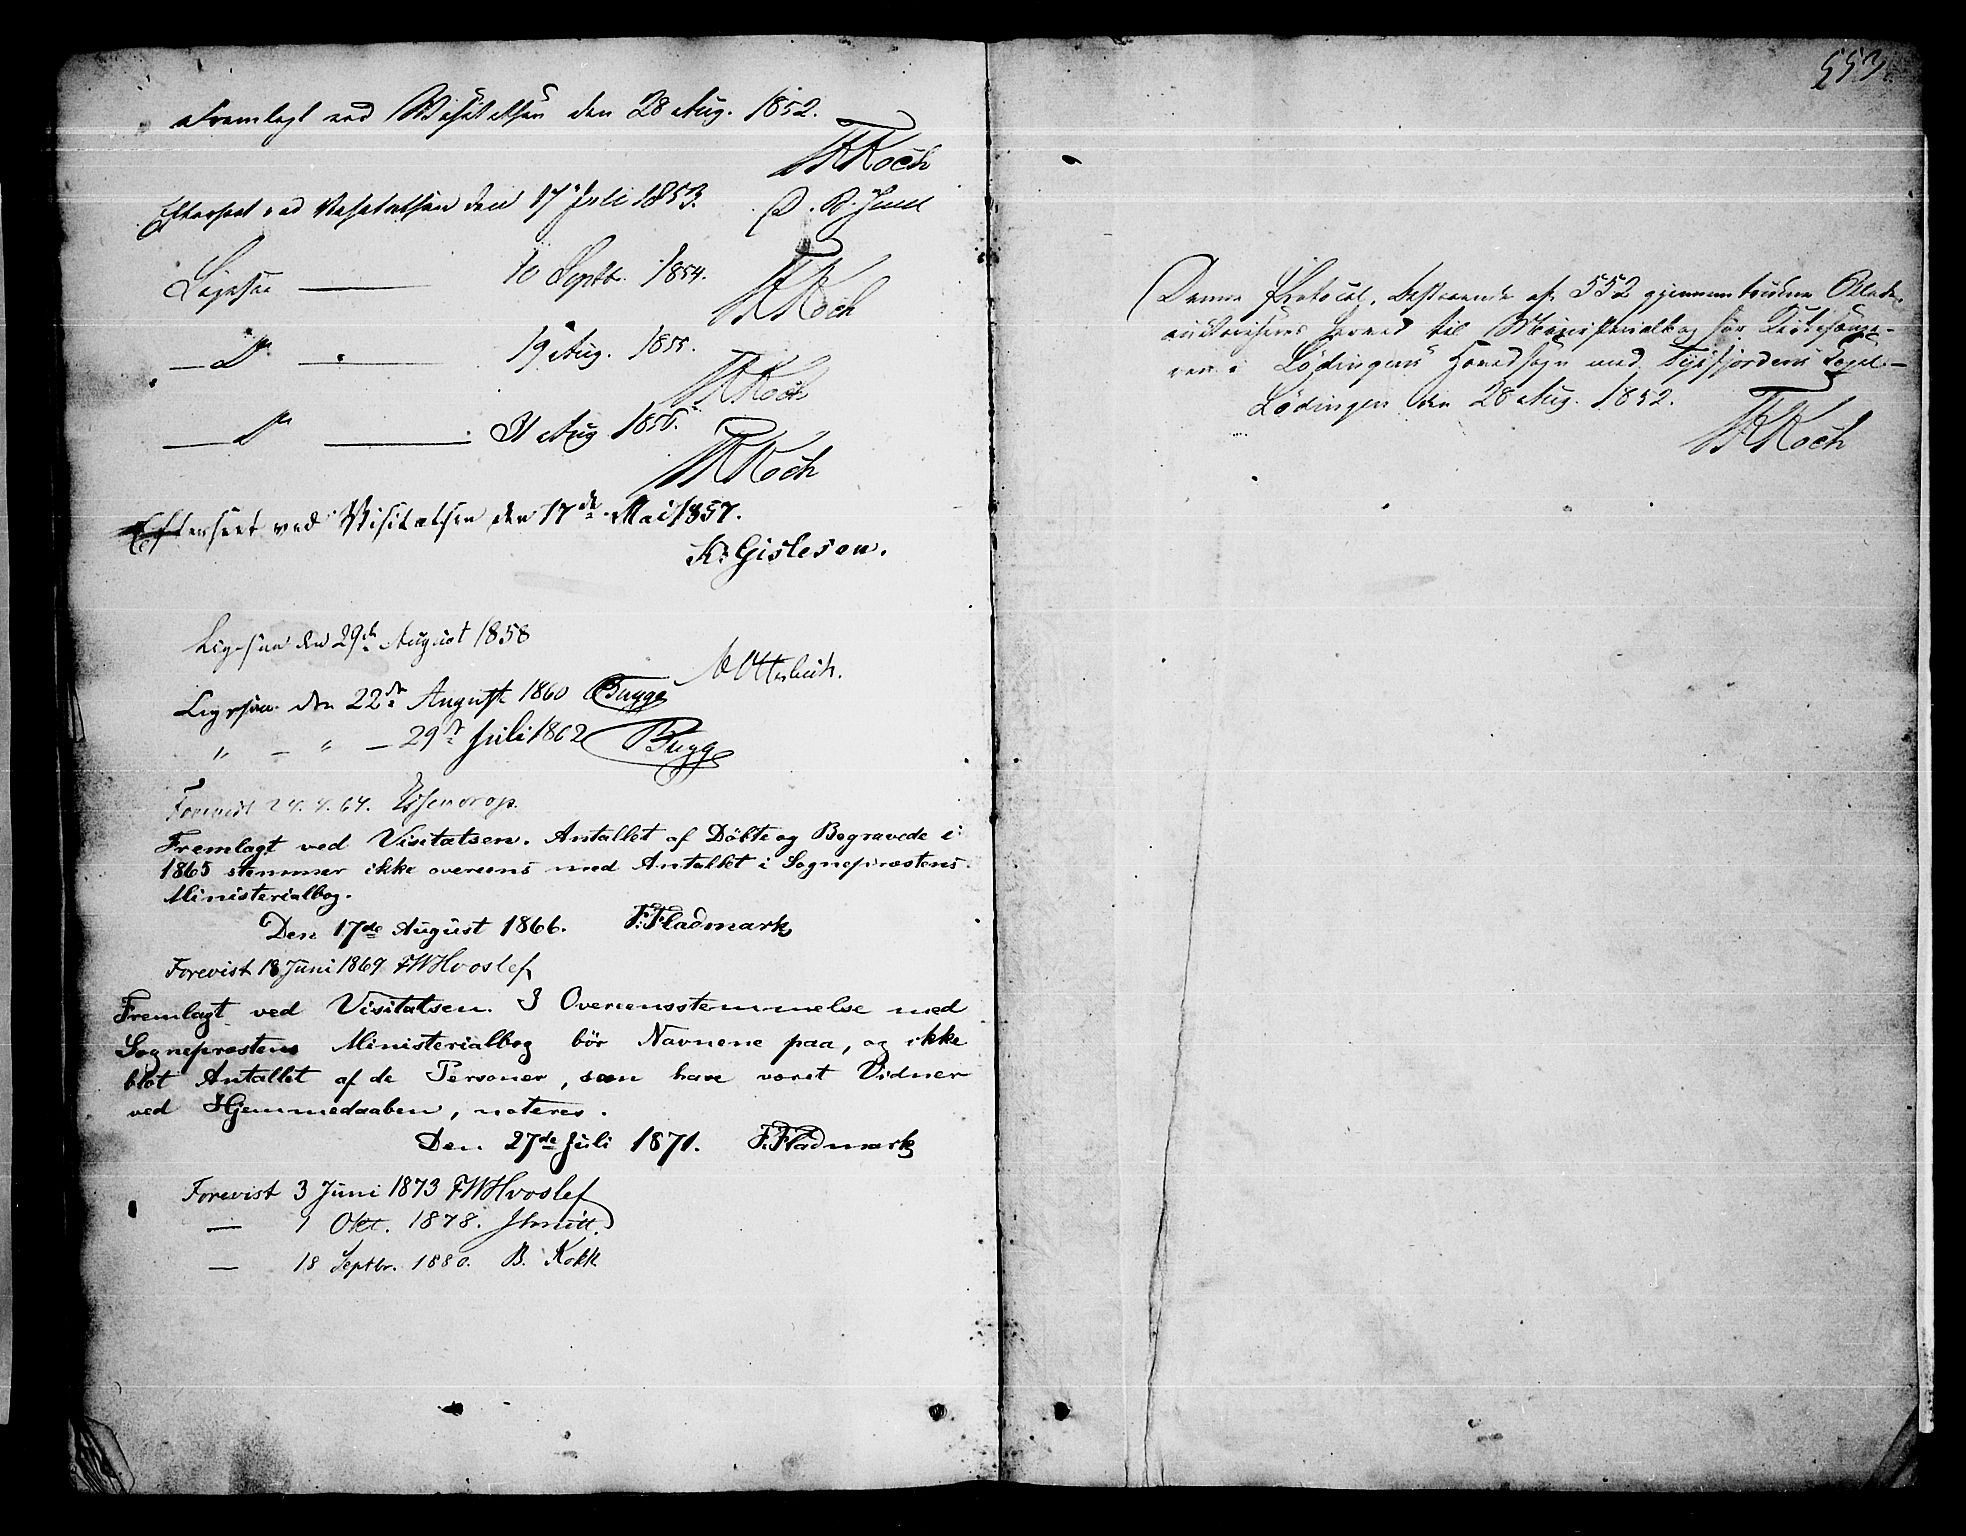 Fremlagt ved Visitatsen den 28 Aug. 1852.
TKoch
Efterseet ved Visitatsen den 17 Juli 1853.
Ligesaa — 10 Septbr. 1854.
TKoch
— Do — 19 Aug. 1855.
TKoch
— Do — 31 Aug 1856.
TKoch
Efterseet ved Visitatsen den 17de Mai 1857.
K. Gisleson.
Ligesaa den 29de August 1858
Ligesaa den 22de August 1860 Bugge
" — " — 29de Juli 1862 Bugge
Forevist
Fremlagt ved Visitatsen. Antallet af Döbte og Begravede i
1865 stemmer ikke overeens med Antallet i Sognepræstens
Ministerialbog.
Den 17de August 1866. F. Fladmark
Forevist 18 Juni 1869 FWHvoslef
Fremlagt ved Visitatsen. I Overeensstemmelse med
Sognepræstens Ministerialbog bör Navnene paa, og ikke
blot Antallet af de Personer, som have været Vidner
ved Hjemmedaaben, noteres.
Den 27de Juli 1871. F. Fladmark
Forevist 3 Juni 1873 FWHvoslef
— 1 Okt. 1878. JSmitt.
— 18 Septbr. 1880. B. Kokk
553
Denne Protocol, bestaaende af 552 gjennemtrukne Blade,
autoriseres herved til Ministerialbog for Kirkesange-
ren i Lödingens Hovedsogn med Tysfjordens Capel. —
Lödingen den 28 Aug. 1852.
TKoch